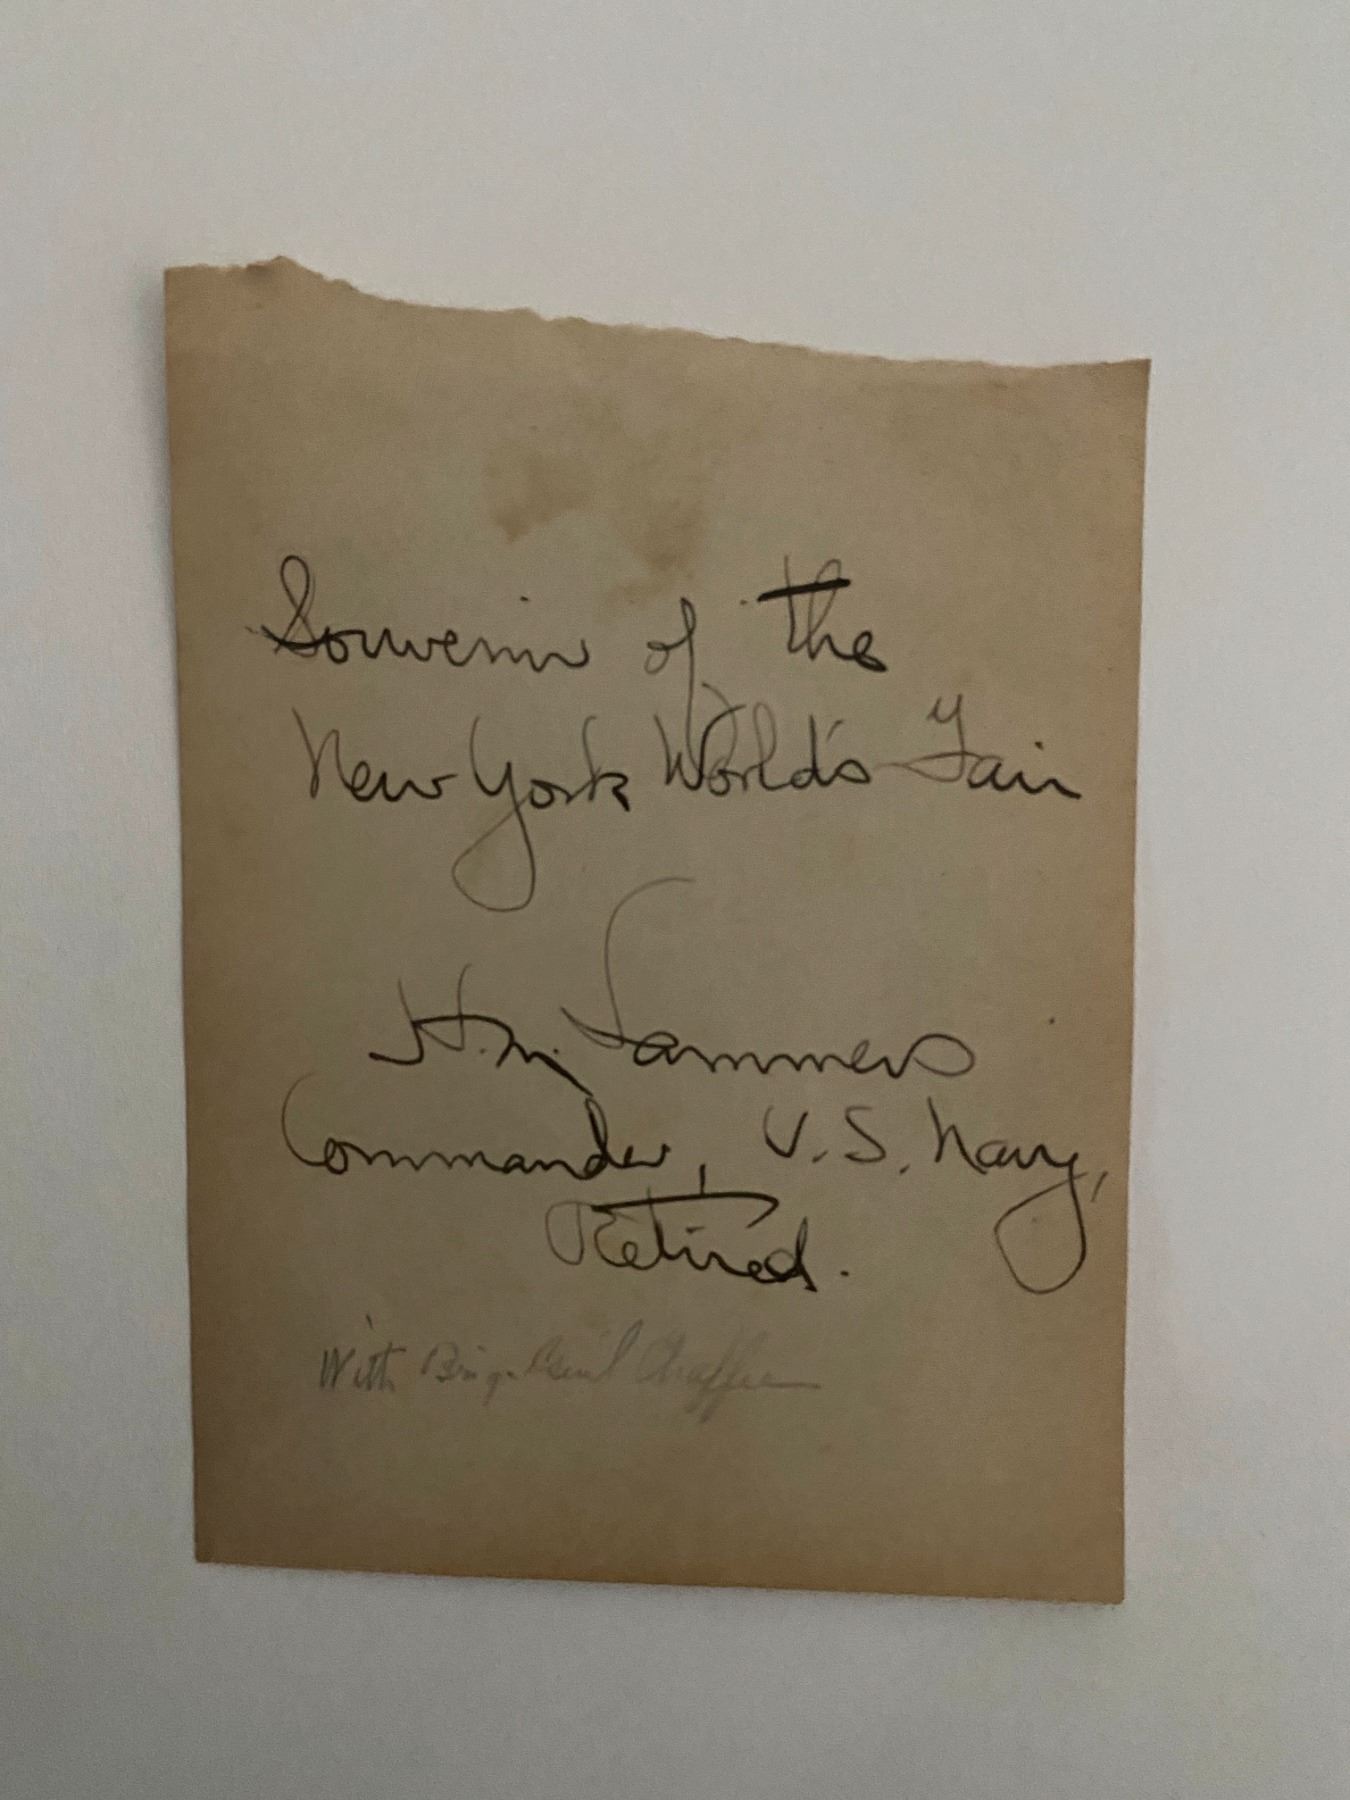 Souvenir of the
New York World's Fair
H.M. Lammers
Commander, U.S. Navy,
Retired.
With Brig. Gen'l Chaffee